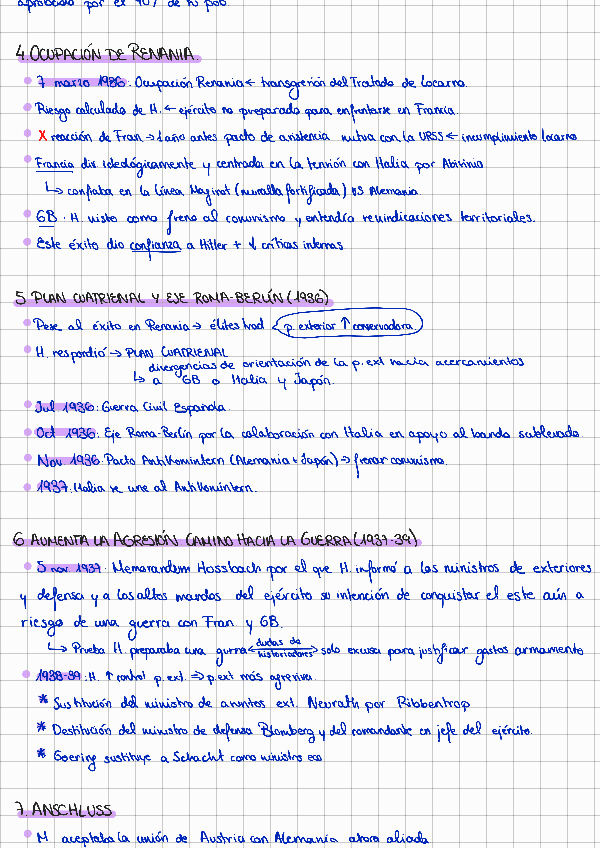 aprobado por el 90% de la pob.
4. OCUPACIÓN DE RENANIA.
7 marzo 1936: Ocupación Renania ← transgresión del Tratado de Locarno.
Riesgo calculado de H. ← ejército no preparado para enfrentarse en Francia.
X reacción de Fran → 1 año antes pacto de asistencia mutua con la URSS ← incumplimiento Locarno
Francia div ideológicamente y centrada en la tensión con Italia por Abisinia
↳ confiaba en la línea Maginot (muralla fortificada) vs Alemania.
GB. H visto como freno al comunismo y entendía reivindicaciones territoriales.
Este éxito dio confianza a Hitler + ↓ críticas internas
5 PLAN CUATRIENAL Y EJE ROMA-BERLÍN (1936)
Pese al éxito en Renania → élites trad < p. exterior ↑ conservadora
H. respondió → PLAN CUATRIENAL
divergencias de orientación de la p. ext hacia acercamientos
↳ a GB o Italia y Japón.
Jul 1936: Guerra Civil Española.
Oct 1936: Eje Roma-Berlín por la colaboración con Italia en apoyo al bando sublevado.
Nov 1936: Pacto AntiKomintern (Alemania + Japón) → frenar comunismo.
1937: Italia se une al AntiKomintern.
6 AUMENTA LA AGRESIÓN CAMINO HACIA LA GUERRA (1937-39)
5 nov 1937: Memorandum Hossbach por el que H. informó a los ministros de exteriores
y defensa y a los altos mandos del ejército su intención de conquistar el este aún a
riesgo de una guerra con Fran. y GB.
↳ Prueba H. preparaba una guerra ← dudas de historiadores → solo excusa para justificar gastos armamento
1938-39: H. ↑ control p. ext. ⇒ p.ext más agresiva.
* Sustitución del ministro de asuntos ext. Neurath por Ribbentrop
* Destitución del ministro de defensa Blomberg y del comandante en jefe del ejército.
* Goering sustituye a Schacht como ministro eco
7. ANSCHLUSS
M aceptaba la unión de Austria con Alemania ahora aliada